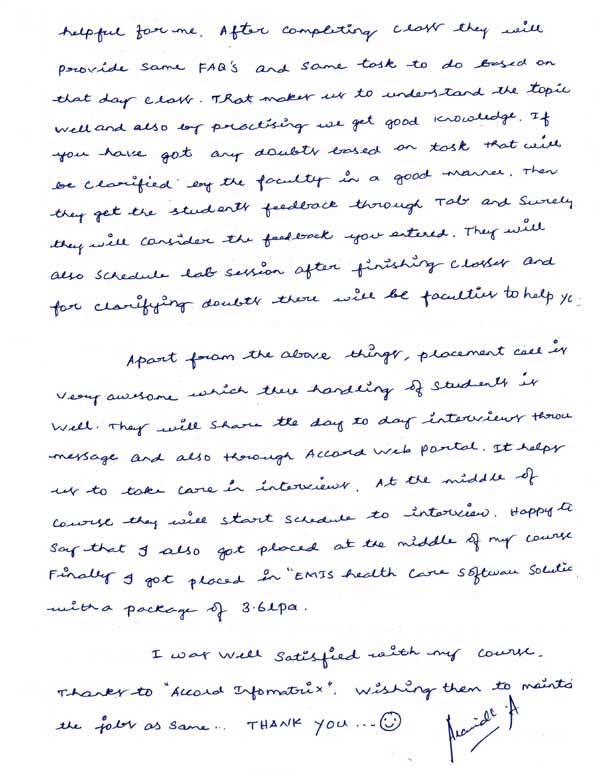 helpful for me. After completing class they will
provide same FAQ's and same task to do based on
that day class. That makes us to understand the topic
well and also by practising we get good knowledge. If
you have got any doubts based on task that will
be clarified by the faculty in a good manner. Then
they get the students feedback through Tab and Surely
they will consider the feedback you entered. They will
also schedule lab session after finishing classes and
for clarifying doubts there will be faculties to help yo
Apart from the above things, placement cell is
very awesome which there handling of students is
well. They will share the day to day interviews throu
message and also through Accord Web portal. It helps
us to take care in interviews. At the middle of
course they will start schedule to interview. Happy to
say that I also got placed at the middle of my course
Finally I got placed in "EMIS health Care Software Solutio
with a package of 3.6lpa.
I was well satisfied with my course.
Thanks to "Accord Infomatrix". Wishing them to mainta
the jobs as same... THANK YOU ...